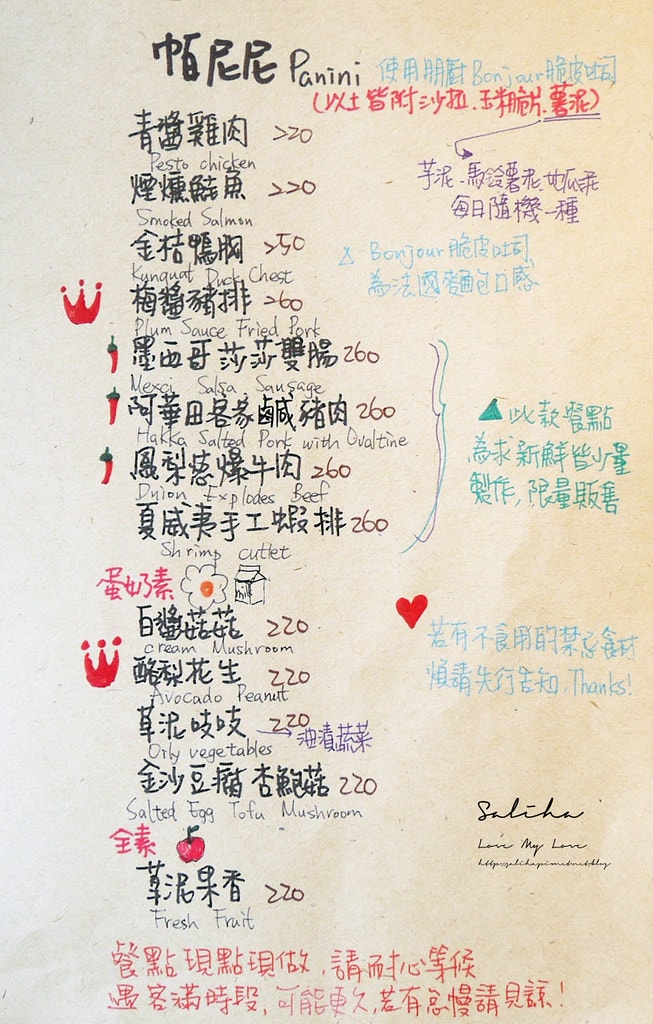 帕尼尼 Panini 使用朋廚Bonjour脆皮吐司
(以上皆附沙拉.玉米脆片.薯泥)
青醬雞肉 220
Pesto chicken
芋泥.馬鈴薯泥.地瓜泥
每日隨機一種
煙燻鮭魚 220
Smoked Salmon
金桔鴨胸 250
Kunquat Duck Chest
△ Bonjour脆皮吐司
為法國麵包口感
梅醬豬排 260
Plum Sauce Fried Pork
墨西哥莎莎雙腸 260
Mexci Salsa Sausage
阿華田客家鹹豬肉 260
Hakka Salted Pork with Ovaltine
鳳梨蔥爆牛肉 260
Onion Explodes Beef
夏威夷手工蝦排 260
Shrimp cutlet
▲此款餐點
為求新鮮皆少量
製作,限量販售
蛋奶素
milk
白醬菇菇 220
cream Mushroom
酪梨花生 220
Avocado Peanut
若有不食用的禁忌食材
煩請先行告知,Thanks!
草泥吱吱 220
油漬蔬菜
Oily vegetables
金沙豆腐杏鮑菇 220
Salted Egg Tofu Mushroom
全素
草泥果香 220
Fresh Fruit
Saliha
Love My Love
http://saliha.pixnet.net/blog
餐點現點現做,請耐心等候
遇客滿時段,可能更久,若有怠慢請見諒!